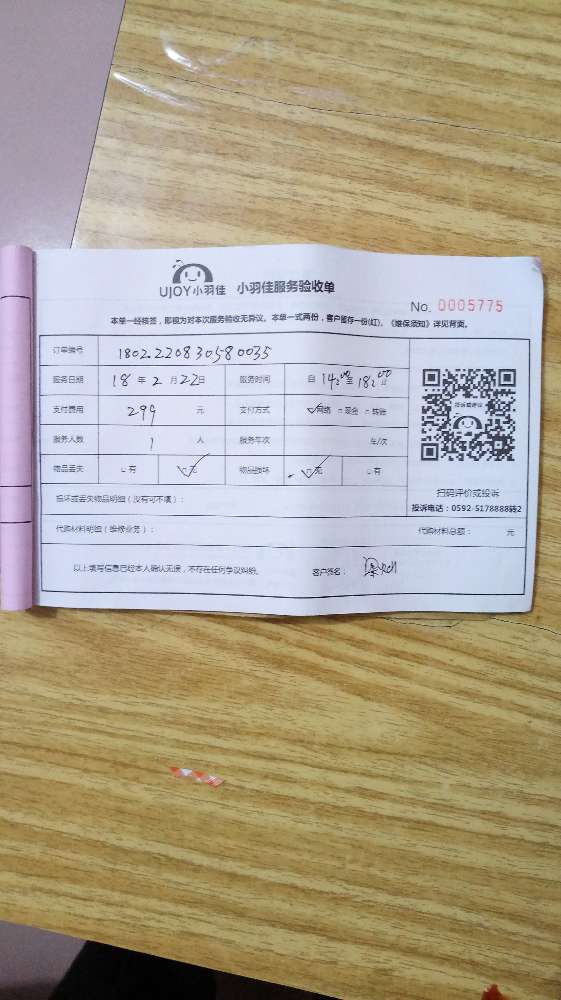 UJOY小羽佳 小羽佳服务验收单
No. 0005775
本单一经核签，即视为对本次服务验收无异议。本单一式两份，客户留存一份(红)。《维保须知》详见背面。
订单编号 1802220830580035
服务日期 18 年 2 月 22日 服务时间 自 14:00至 18:00止
支付费用 299 元 支付方式 ✓网络 □现金 □转账
服务人数 1 人 服务车次 车/次
物品丢失 □有 ✓无 物品损坏 ✓无 □有
损坏或丢失物品明细（没有可不填）：
代购材料明细（维修业务）： 代购材料总额： 元
以上填写信息已经本人确认无误，不存在任何争议纠纷。 客户签名：
投诉或建议
扫码评价或投诉
投诉电话：0592-5178888转2